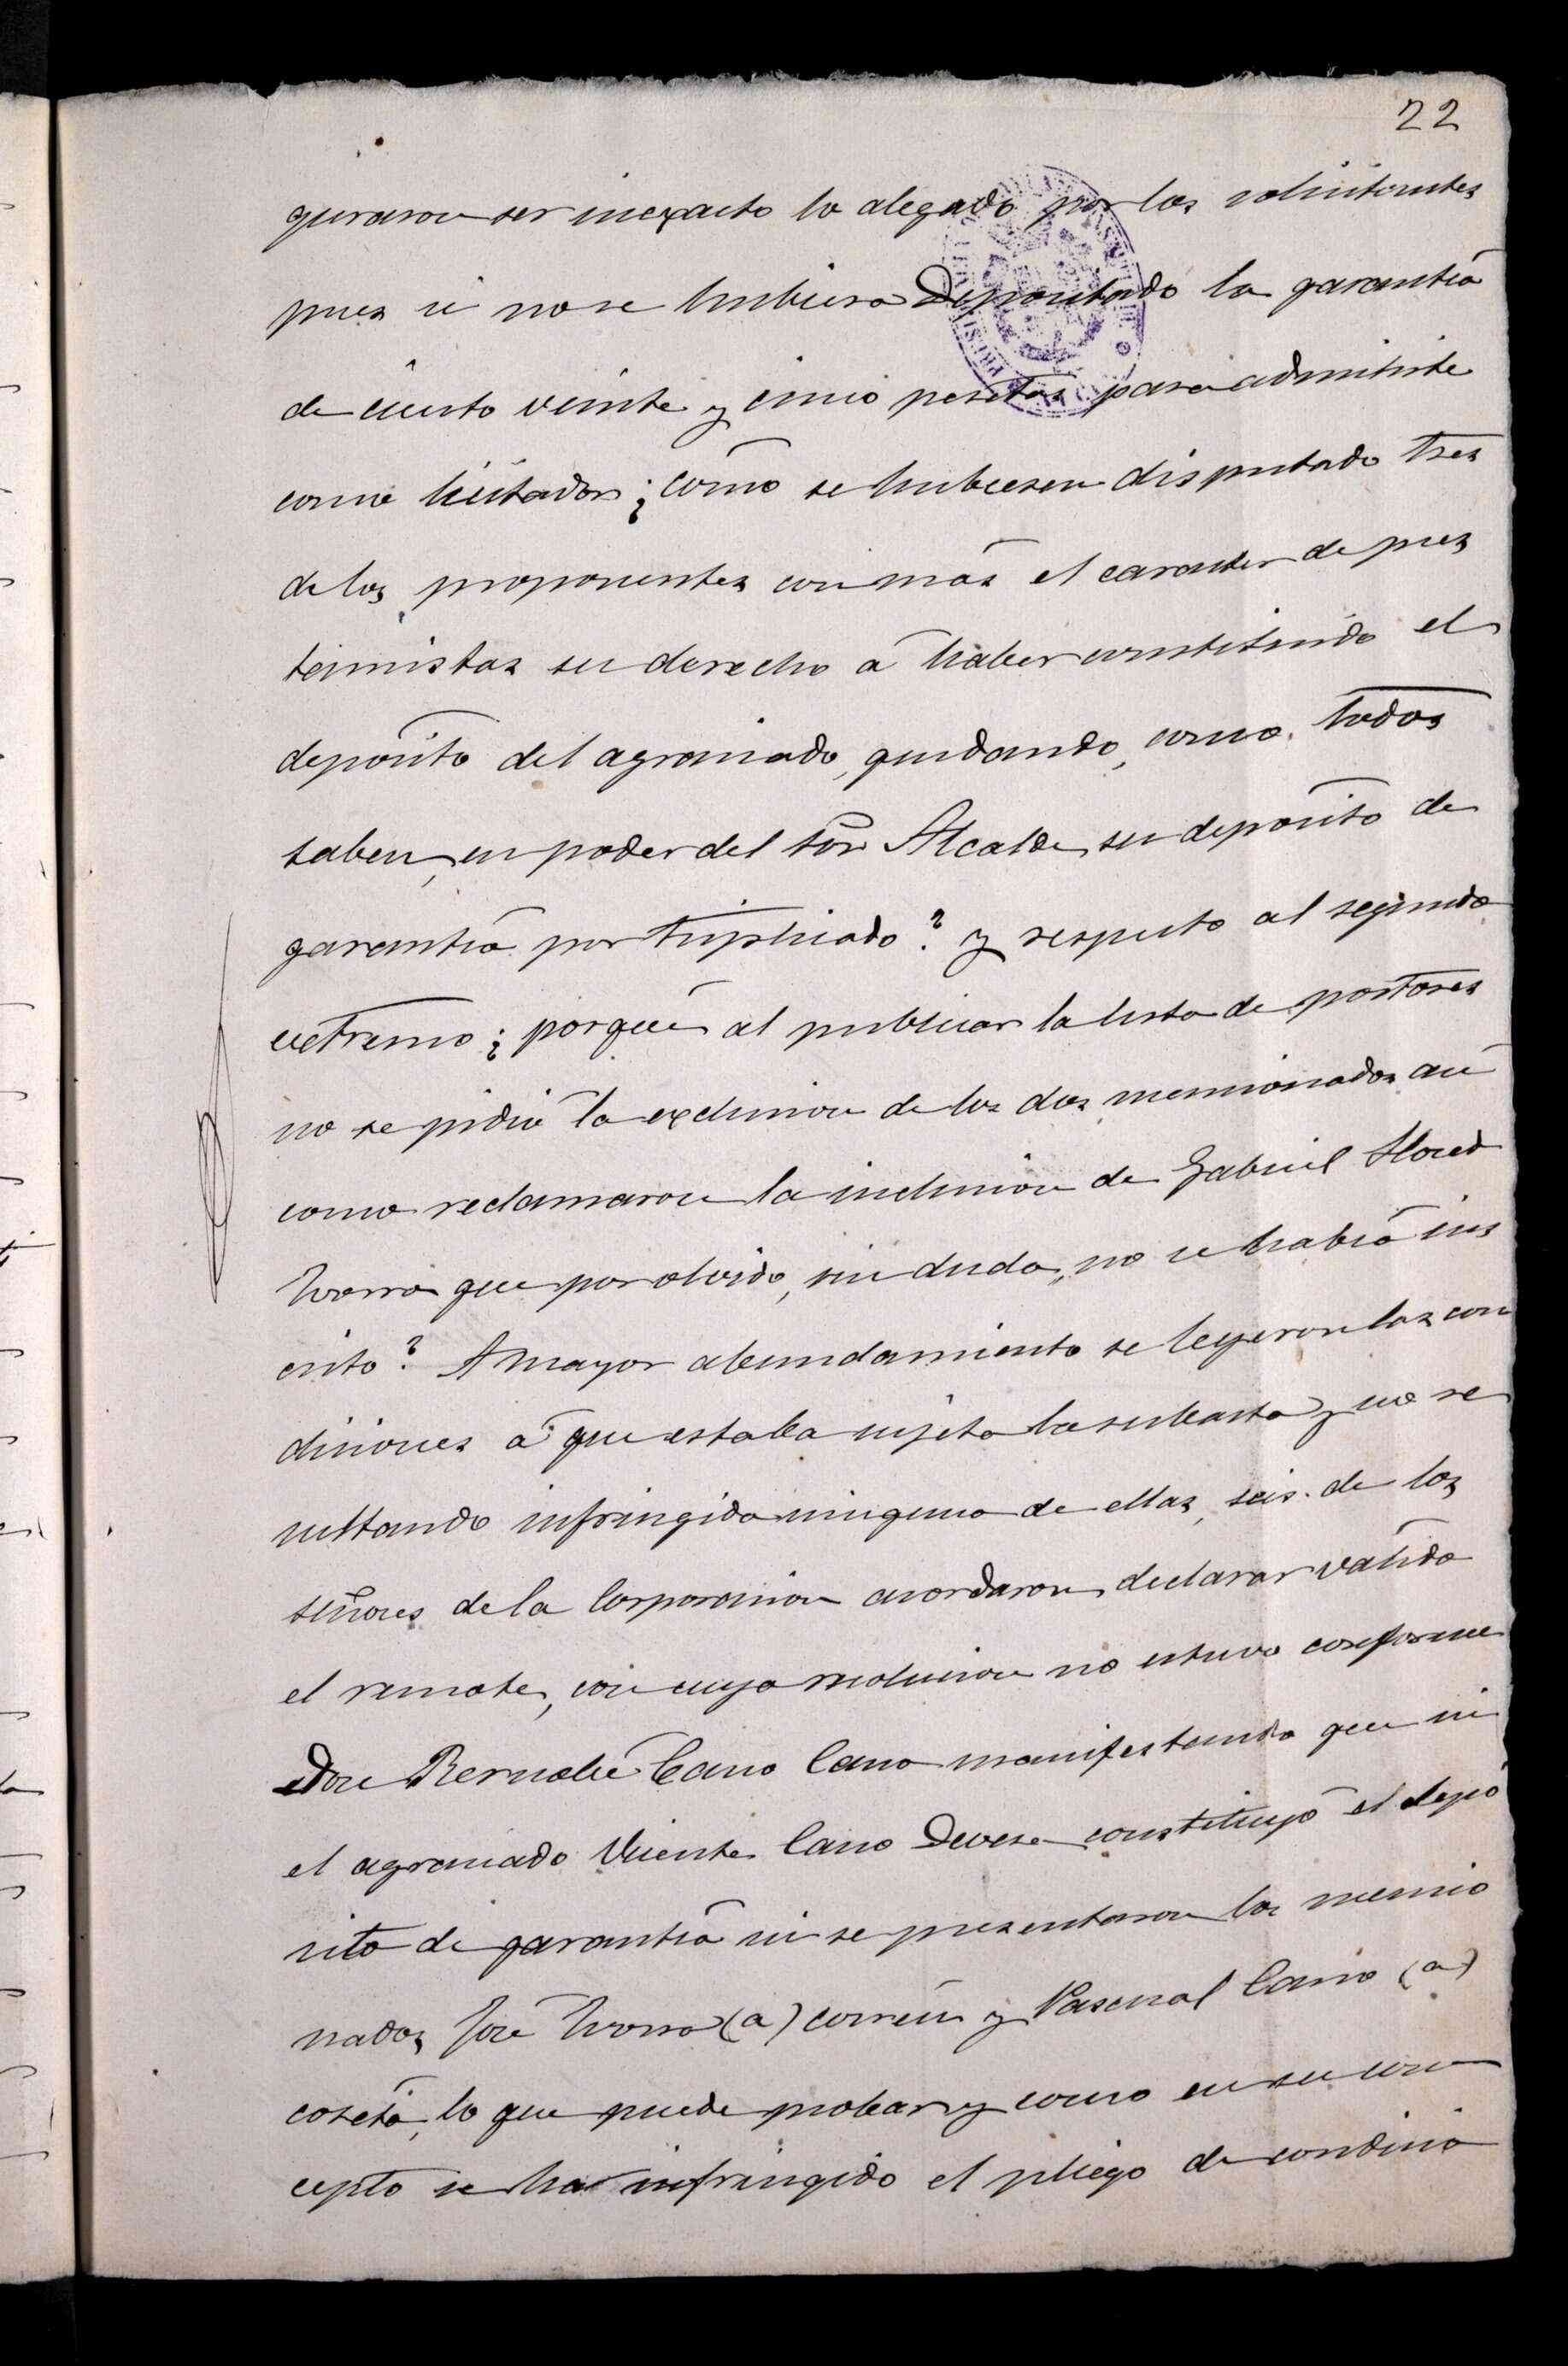 22
guraron ser inexacto lo alegado por los solicitantes
pues si no se hubiera Depositado la garantía
de ciento veinte y cinco pesetas para admitirle
como licitador ¿como se hubiesen disputado tres
de los proponentes con más el caracter de pres
tamistas su derecho á haber constituido el
depósito del agraciado, quedando, como todos
saben, en poder del Sor Alcalde su deposito de
garantía por triplicado? y respecto al segundo
extremo ¿porqué al publicar la lista de postores
no se pidió la exclusion de los dos mencionados asi
como reclamaron la inclusión de Gabriel Llored
Ivorra que por olvido, sin duda, no se había ins
crito? A mayor abundamiento se leyeron las con
diciones á que estaba sujeta la subasta y no re
sultando infringida ninguna de ellas, seis de los
señores de la Corporacion acordaron declarar válido
el remate, con cuya resolucion no estuvo conforme
Don Bernabé Cano Cano manifestando que ni
el agraciado Vicente Cano Devesa constituyó el depó
sito de garantía ni se presentaron los mencio
nados José Ivorra (a) correu y Pascual Cano (a)
coseta, lo que puede probar y como en su con
cepto se ha infringido el pliego de condicio